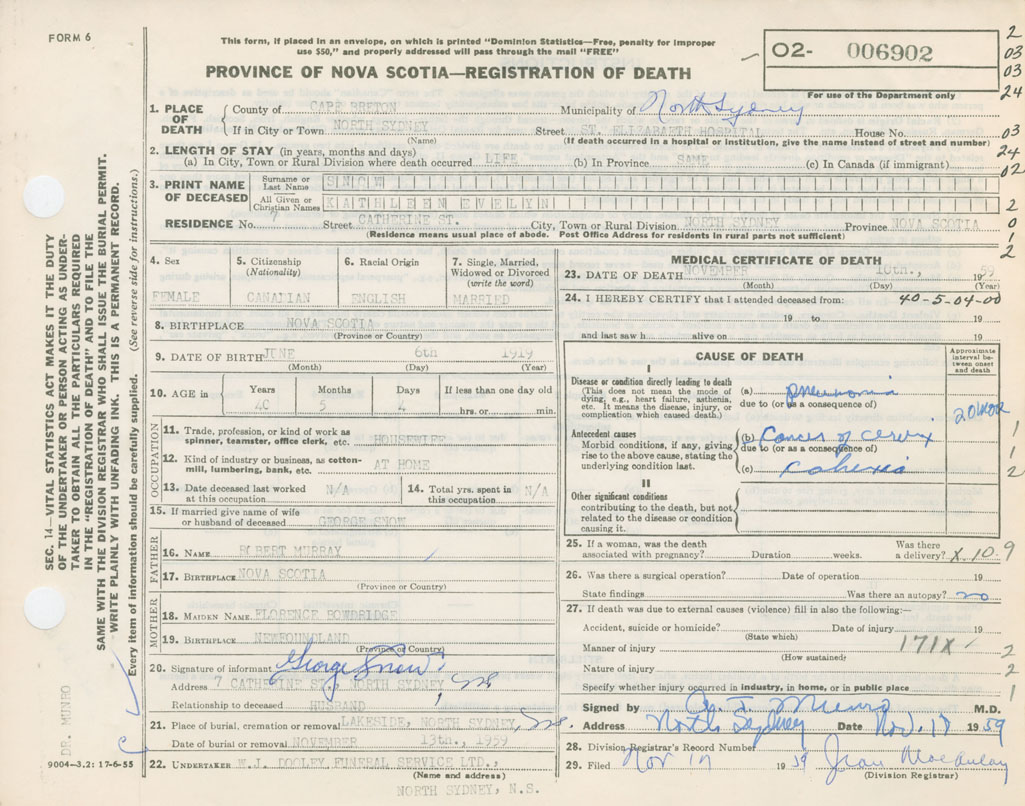 FORM 6
This form, if placed in an envelope, on which is printed "Dominion Statistics—Free, penalty for improper
use $50," and properly addressed will pass through the mail "FREE"
PROVINCE OF NOVA SCOTIA—REGISTRATION OF DEATH
02- 006902
For use of the Department only
2
03
03
24
1. PLACE OF DEATH
County of CAPE BRETON Municipality of North Sydney
If in City or Town NORTH SYDNEY Street ST. ELIZABAETH HOSPITAL House No. 03
(Name) (If death occurred in a hospital or institution, give the name instead of street and number)
24
2. LENGTH OF STAY (in years, months and days)
(a) In City, Town or Rural Division where death occurred LIFE (b) In Province SAME (c) In Canada (if immigrant) 02
3. PRINT NAME OF DECEASED
Surname or Last Name SNOW
All Given or Christian Names KATHLEEN EVELYN 2
RESIDENCE No. 7 Street CATHERINE ST. City, Town or Rural Division NORTH SYDNEY Province NOVA SCOTIA 0
(Residence means usual place of abode. Post Office Address for residents in rural parts not sufficient) 1
2
4. Sex
FEMALE
5. Citizenship
(Nationality)
CANADIAN
6. Racial Origin
ENGLISH
7. Single, Married,
Widowed or Divorced
(write the word)
MARRIED
8. BIRTHPLACE NOVA SCOTIA
(Province or Country)
9. DATE OF BIRTH JUNE 6th 1919
(Month) (Day) (Year)
10. AGE in
Years Months Days If less than one day old
40 5 4 hrs. or min.
OCCUPATION
11. Trade, profession, or kind of work as
spinner, teamster, office clerk, etc. HOUSEWIFE
12. Kind of industry or business, as cotton-
mill, lumbering, bank, etc. AT HOME
13. Date deceased last worked
at this occupation N/A
14. Total yrs. spent in
this occupation N/A
15. If married give name of wife
or husband of deceased GEORGE SNOW
FATHER
16. NAME ROBERT MURRAY
17. BIRTHPLACE NOVA SCOTIA
(Province or Country)
MOTHER
18. MAIDEN NAME FLORENCE BOWDRIDGE
19. BIRTHPLACE NEWFOUNDLAND
(Province or Country)
20. Signature of informant George Snow
Address 7 CATHERINE ST., NORTH SYDNEY, NS
Relationship to deceased HUSBAND
21. Place of burial, cremation or removal LAKESIDE, NORTH SYDNEY, NS
Date of burial or removal NOVEMBER 13th., 1959
22. UNDERTAKER W.J. DOOLEY FUNERAL SERVICE LTD.,
(Name and address)
NORTH SYDNEY, N.S.
MEDICAL CERTIFICATE OF DEATH
23. DATE OF DEATH NOVEMBER 10th., 1959
(Month) (Day) (Year)
24. I HEREBY CERTIFY that I attended deceased from: 40-5-04-00
19 to 19
and last saw h alive on 19
CAUSE OF DEATH
Approximate
interval be-
tween onset
and death
I
Disease or condition directly leading to death
(This does not mean the mode of
dying, e.g., heart failure, asthenia,
etc. It means the disease, injury, or
complication which caused death.)
(a) pneumonia
due to (or as a consequence of)
Antecedent causes
Morbid conditions, if any, giving
rise to the above cause, stating the
underlying condition last.
(b) Cancer of cervix
due to (or as a consequence of)
(c)
1
1
2
II
Other significant conditions
contributing to the death, but not
related to the disease or condition
causing it.
25. If a woman, was the death
associated with pregnancy? Duration weeks. Was there
a delivery? X.10.9
26. Was there a surgical operation? Date of operation 19
State findings Was there an autopsy? no
27. If death was due to external causes (violence) fill in also the following:—
Accident, suicide or homicide? Date of injury 19
(State which)
Manner of injury 171X 2
(How sustained)
Nature of injury 2
Specify whether injury occurred in industry, in home, or in public place 1
Signed by Munro M.D.
Address North Sydney Date Nov. 17 1959
28. Division Registrar's Record Number
29. Filed Nov 17 1959 Jean MacAulay
(Division Registrar)
SEC. 14—VITAL STATISTICS ACT MAKES IT THE DUTY
OF THE UNDERTAKER OR PERSON ACTING AS UNDER-
TAKER TO OBTAIN ALL THE PARTICULARS REQUIRED
IN THE "REGISTRATION OF DEATH" AND TO FILE THE
SAME WITH THE DIVISION REGISTRAR WHO SHALL ISSUE THE BURIAL PERMIT.
WRITE PLAINLY WITH UNFADING INK. THIS IS A PERMANENT RECORD.
Every item of information should be carefully supplied. (See reverse side for instructions.)
DR. MUNRO
9004—3.2: 17-6-55